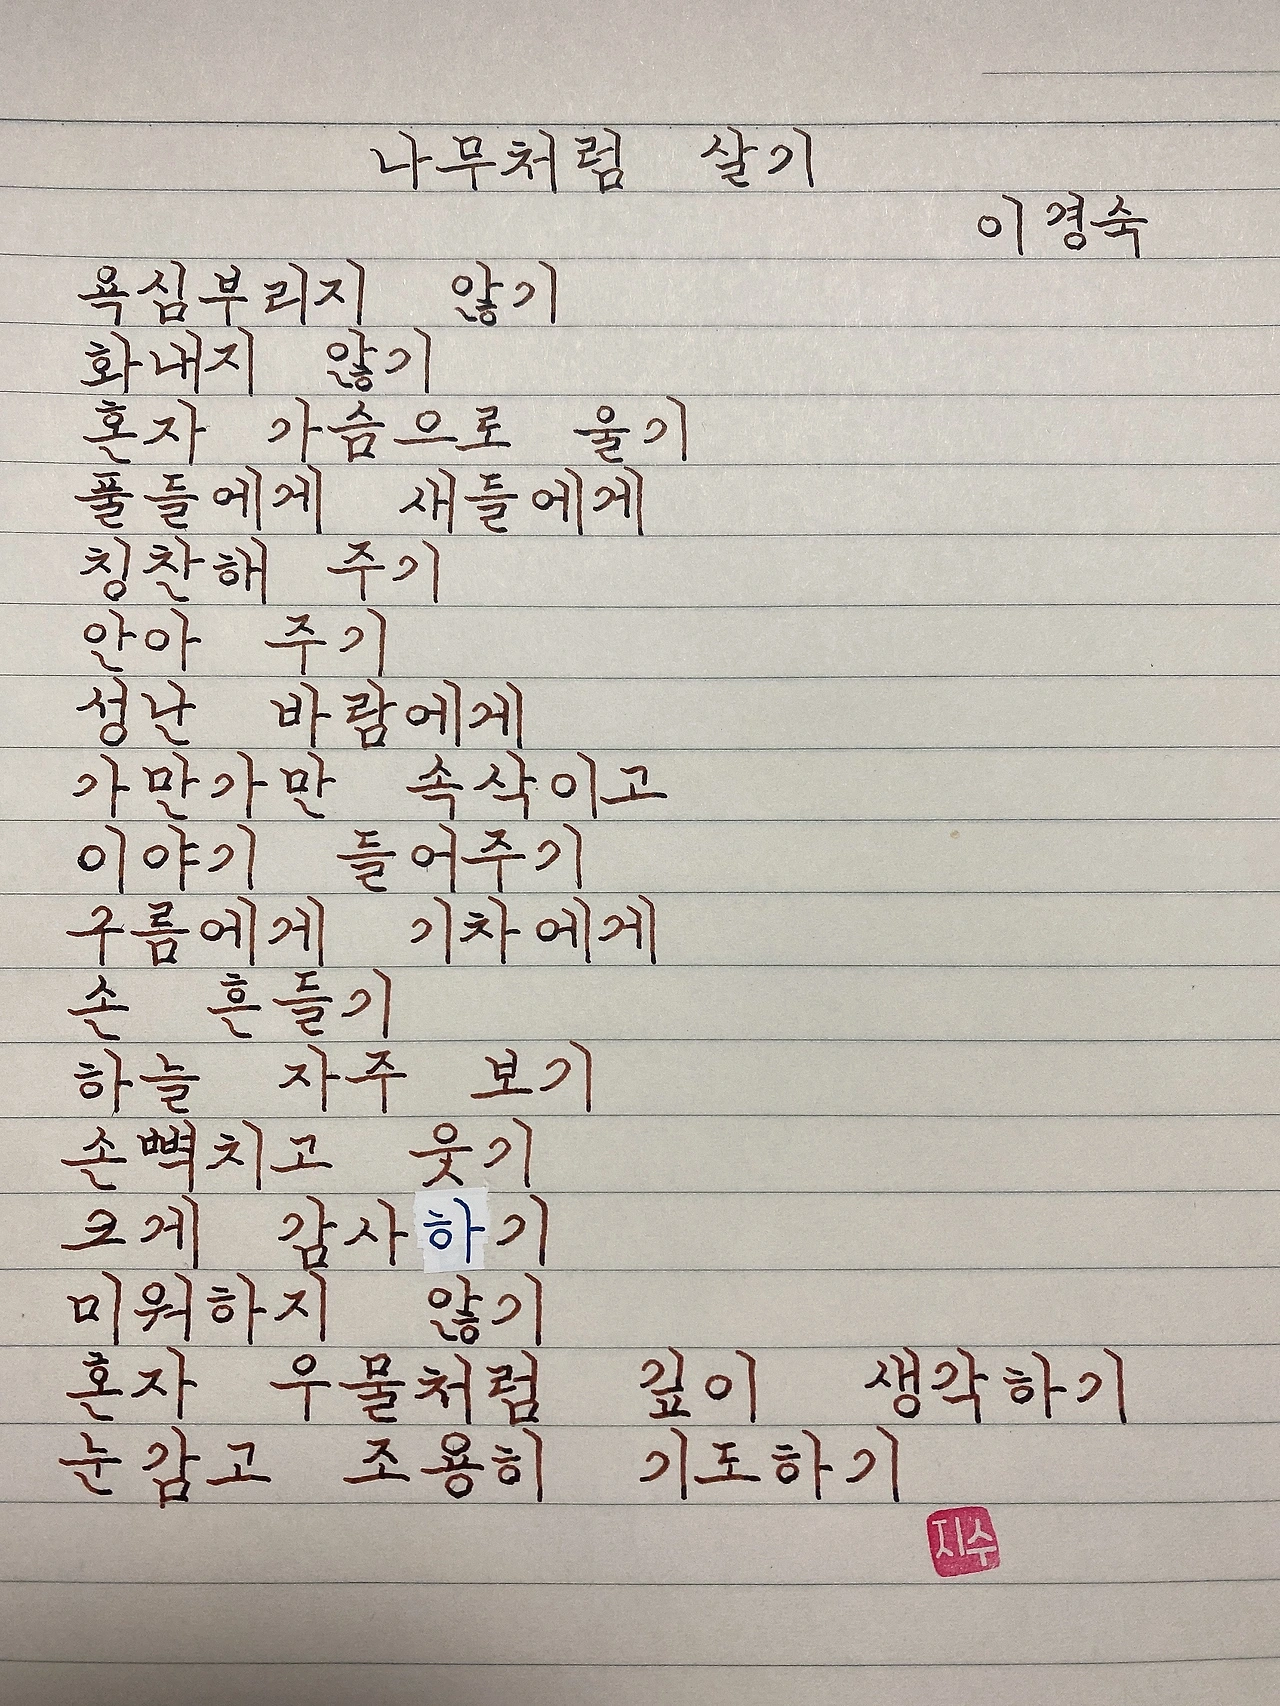 나무처럼 살기
이경숙
욕심부리지 않기
화내지 않기
혼자 가슴으로 울기
풀들에게 새들에게
칭찬해 주기
안아 주기
성난 바람에게
가만가만 속삭이고
이야기 들어주기
구름에게 기차에게
손 흔들기
하늘 자주 보기
손뼉치고 웃기
크게 감사하기
미워하지 않기
혼자 우물처럼 깊이 생각하기
눈감고 조용히 기도하기
지수